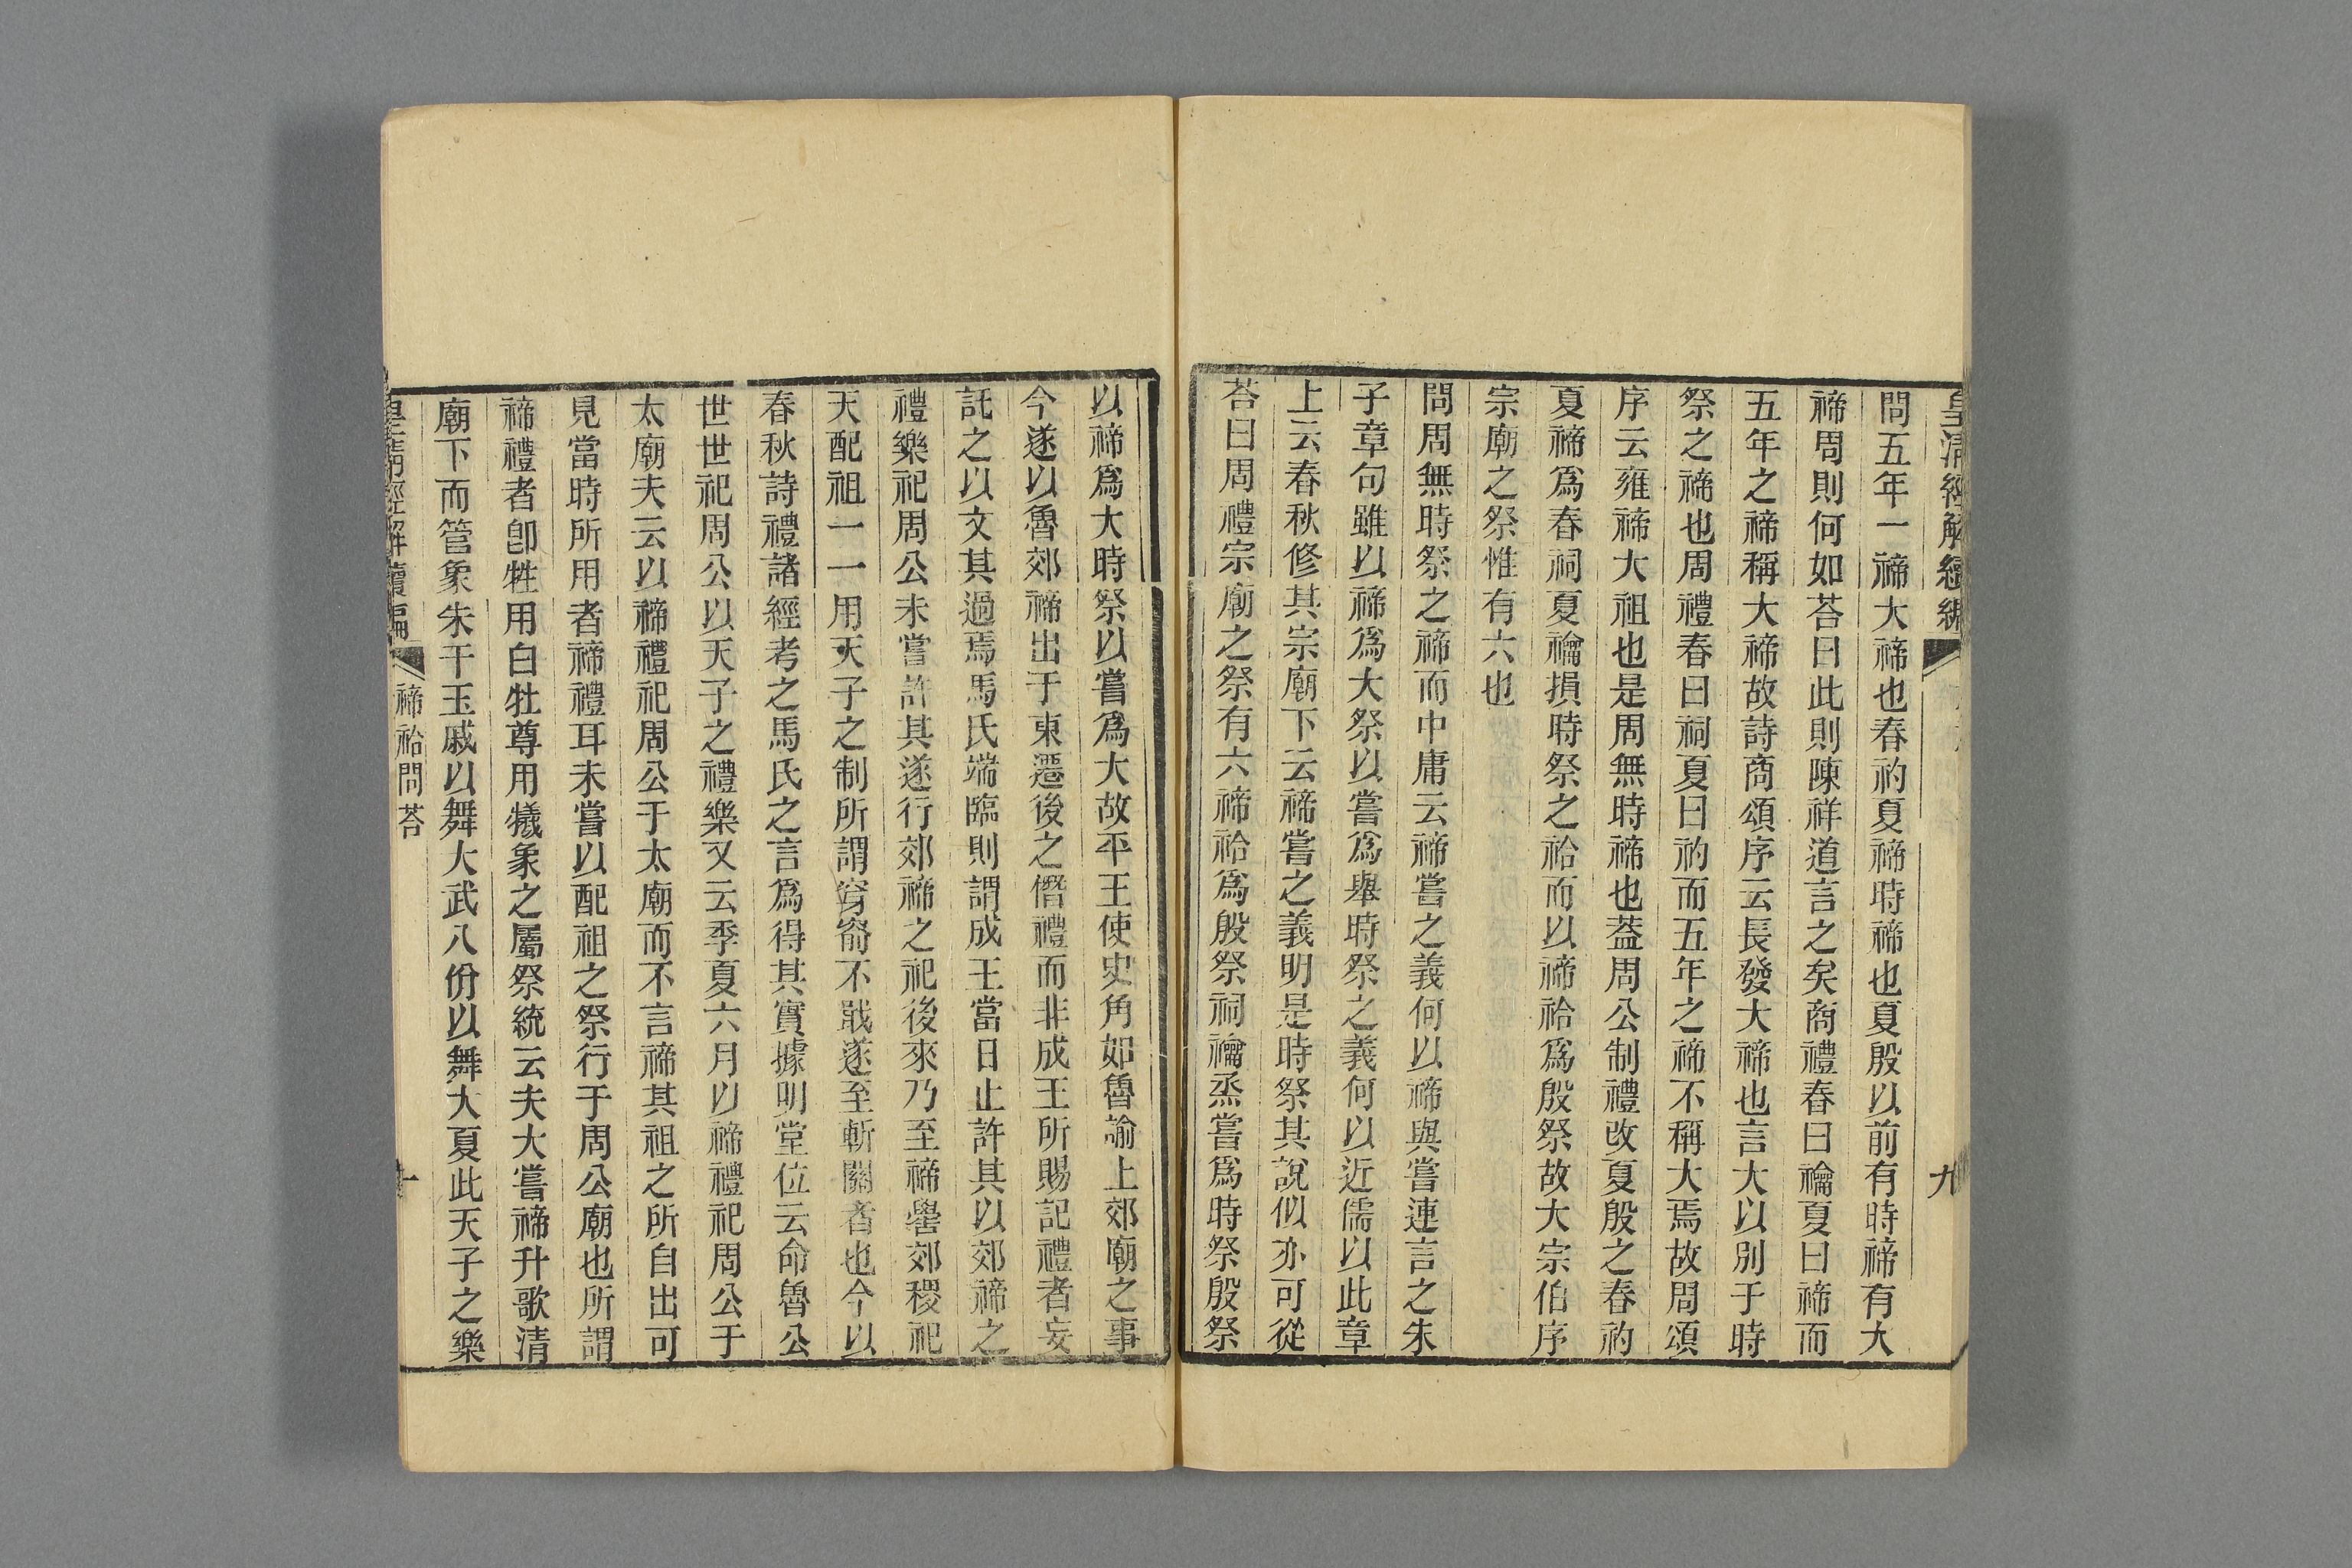 皇清經解續編
九
問五年一禘大禘也春礿夏禘時禘也夏殷以前有時禘有大
禘周則何如荅曰此則陳祥道言之矣商禮春曰禴夏曰禘而
五年之禘稱大禘故詩商頌序云長發大禘也言大以別于時
祭之禘也周禮春曰祠夏曰礿而五年之禘不稱大焉故周頌
序云雍禘大祖也是周無時禘也蓋周公制禮改夏殷之春礿
夏禘爲春祠夏禴損時祭之祫而以禘祫爲殷祭故大宗伯序
宗廟之祭惟有六也
問周無時祭之禘而中庸云禘嘗之義何以禘與嘗連言之朱
子章句雖以禘爲大祭以嘗爲舉時祭之義何以近儒以此章
上云春秋修其宗廟下云禘嘗之義明是時祭其說似亦可從
荅曰周禮宗廟之祭有六禘祫爲殷祭祠禴烝嘗爲時祭殷祭
以禘爲大時祭以嘗爲大故平王使史角如魯諭上郊廟之事
今遂以魯郊禘出于東遷後之僭禮而非成王所賜記禮者妄
託之以文其過焉馬氏端臨則謂成王當日止許其以郊禘之
禮樂祀周公未嘗許其遂行郊禘之祀後來乃至禘嚳郊稷祀
天配祖一一用天子之制所謂穿窬不戢遂至斬關者也今以
春秋詩禮諸經考之馬氏之言爲得其實據明堂位云命魯公
世世祀周公以天子之禮樂又云季夏六月以禘禮祀周公于
太廟夫云以禘禮祀周公于太廟而不言禘其祖之所自出可
見當時所用者禘禮耳未嘗以配祖之祭行于周公廟也所謂
禘禮者卽牲用白牡尊用犧象之屬祭統云夫大嘗禘升歌清
廟下而管象朱干玉戚以舞大武八佾以舞大夏此天子之樂
皇清經解續編
禘祫問荅
十